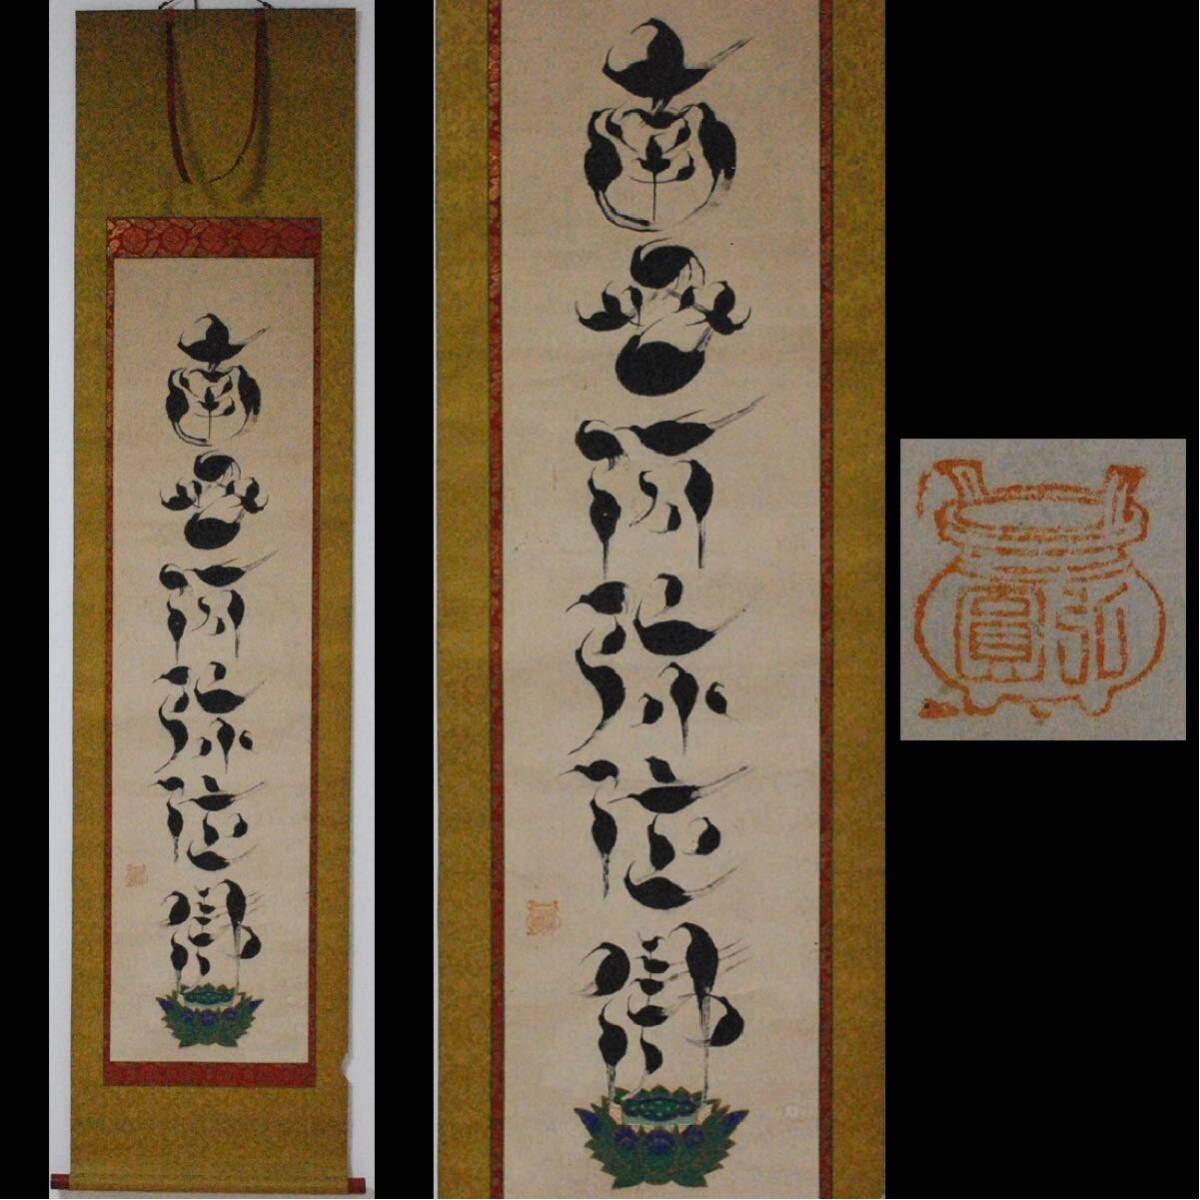 南無阿弥陀佛
南無阿弥陀佛
弘圓